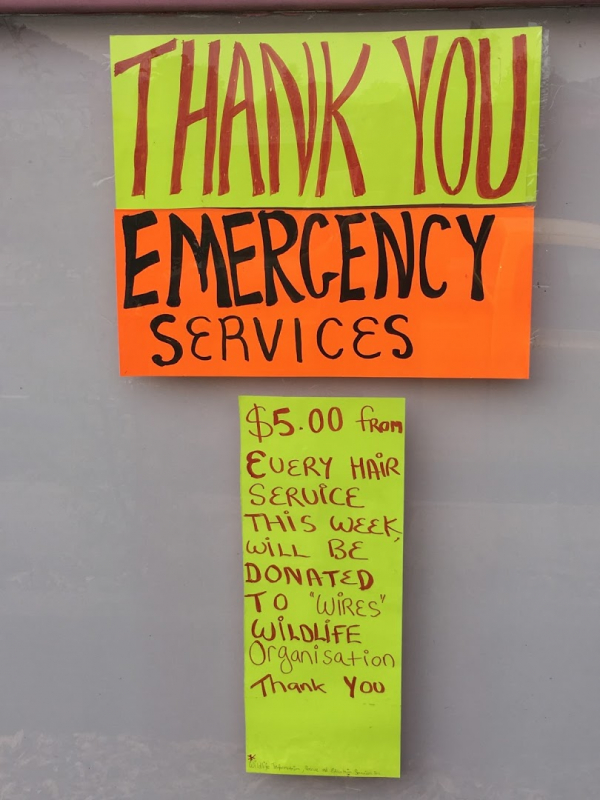 THANK YOU
EMERGENCY
SERVICES
$5.00 from
EVERY HAIR
SERVICE
THIS WEEK,
WILL BE
DONATED
TO "WIRES"
WILDLIFE
Organisation
Thank You
*